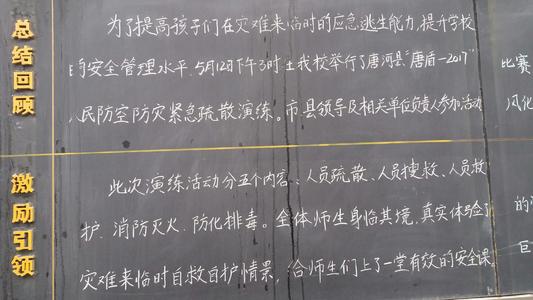 总结回顾
为了提高孩子们在灾难来临时的应急逃生能力,提升学校
的安全管理水平.5月12日下午3时,我校举行了唐河县"唐盾—2017"
人民防空防灾紧急疏散演练。市县领导及相关单位负责人参加活动
激励引领
此次演练活动分五个内容:人员疏散、人员搜救、人员救
护、消防灭火、防化排毒。全体师生身临其境,真实体验了
灾难来临时自救自护情景,给师生们上了一堂有效的安全课
比赛
风化
的
巨